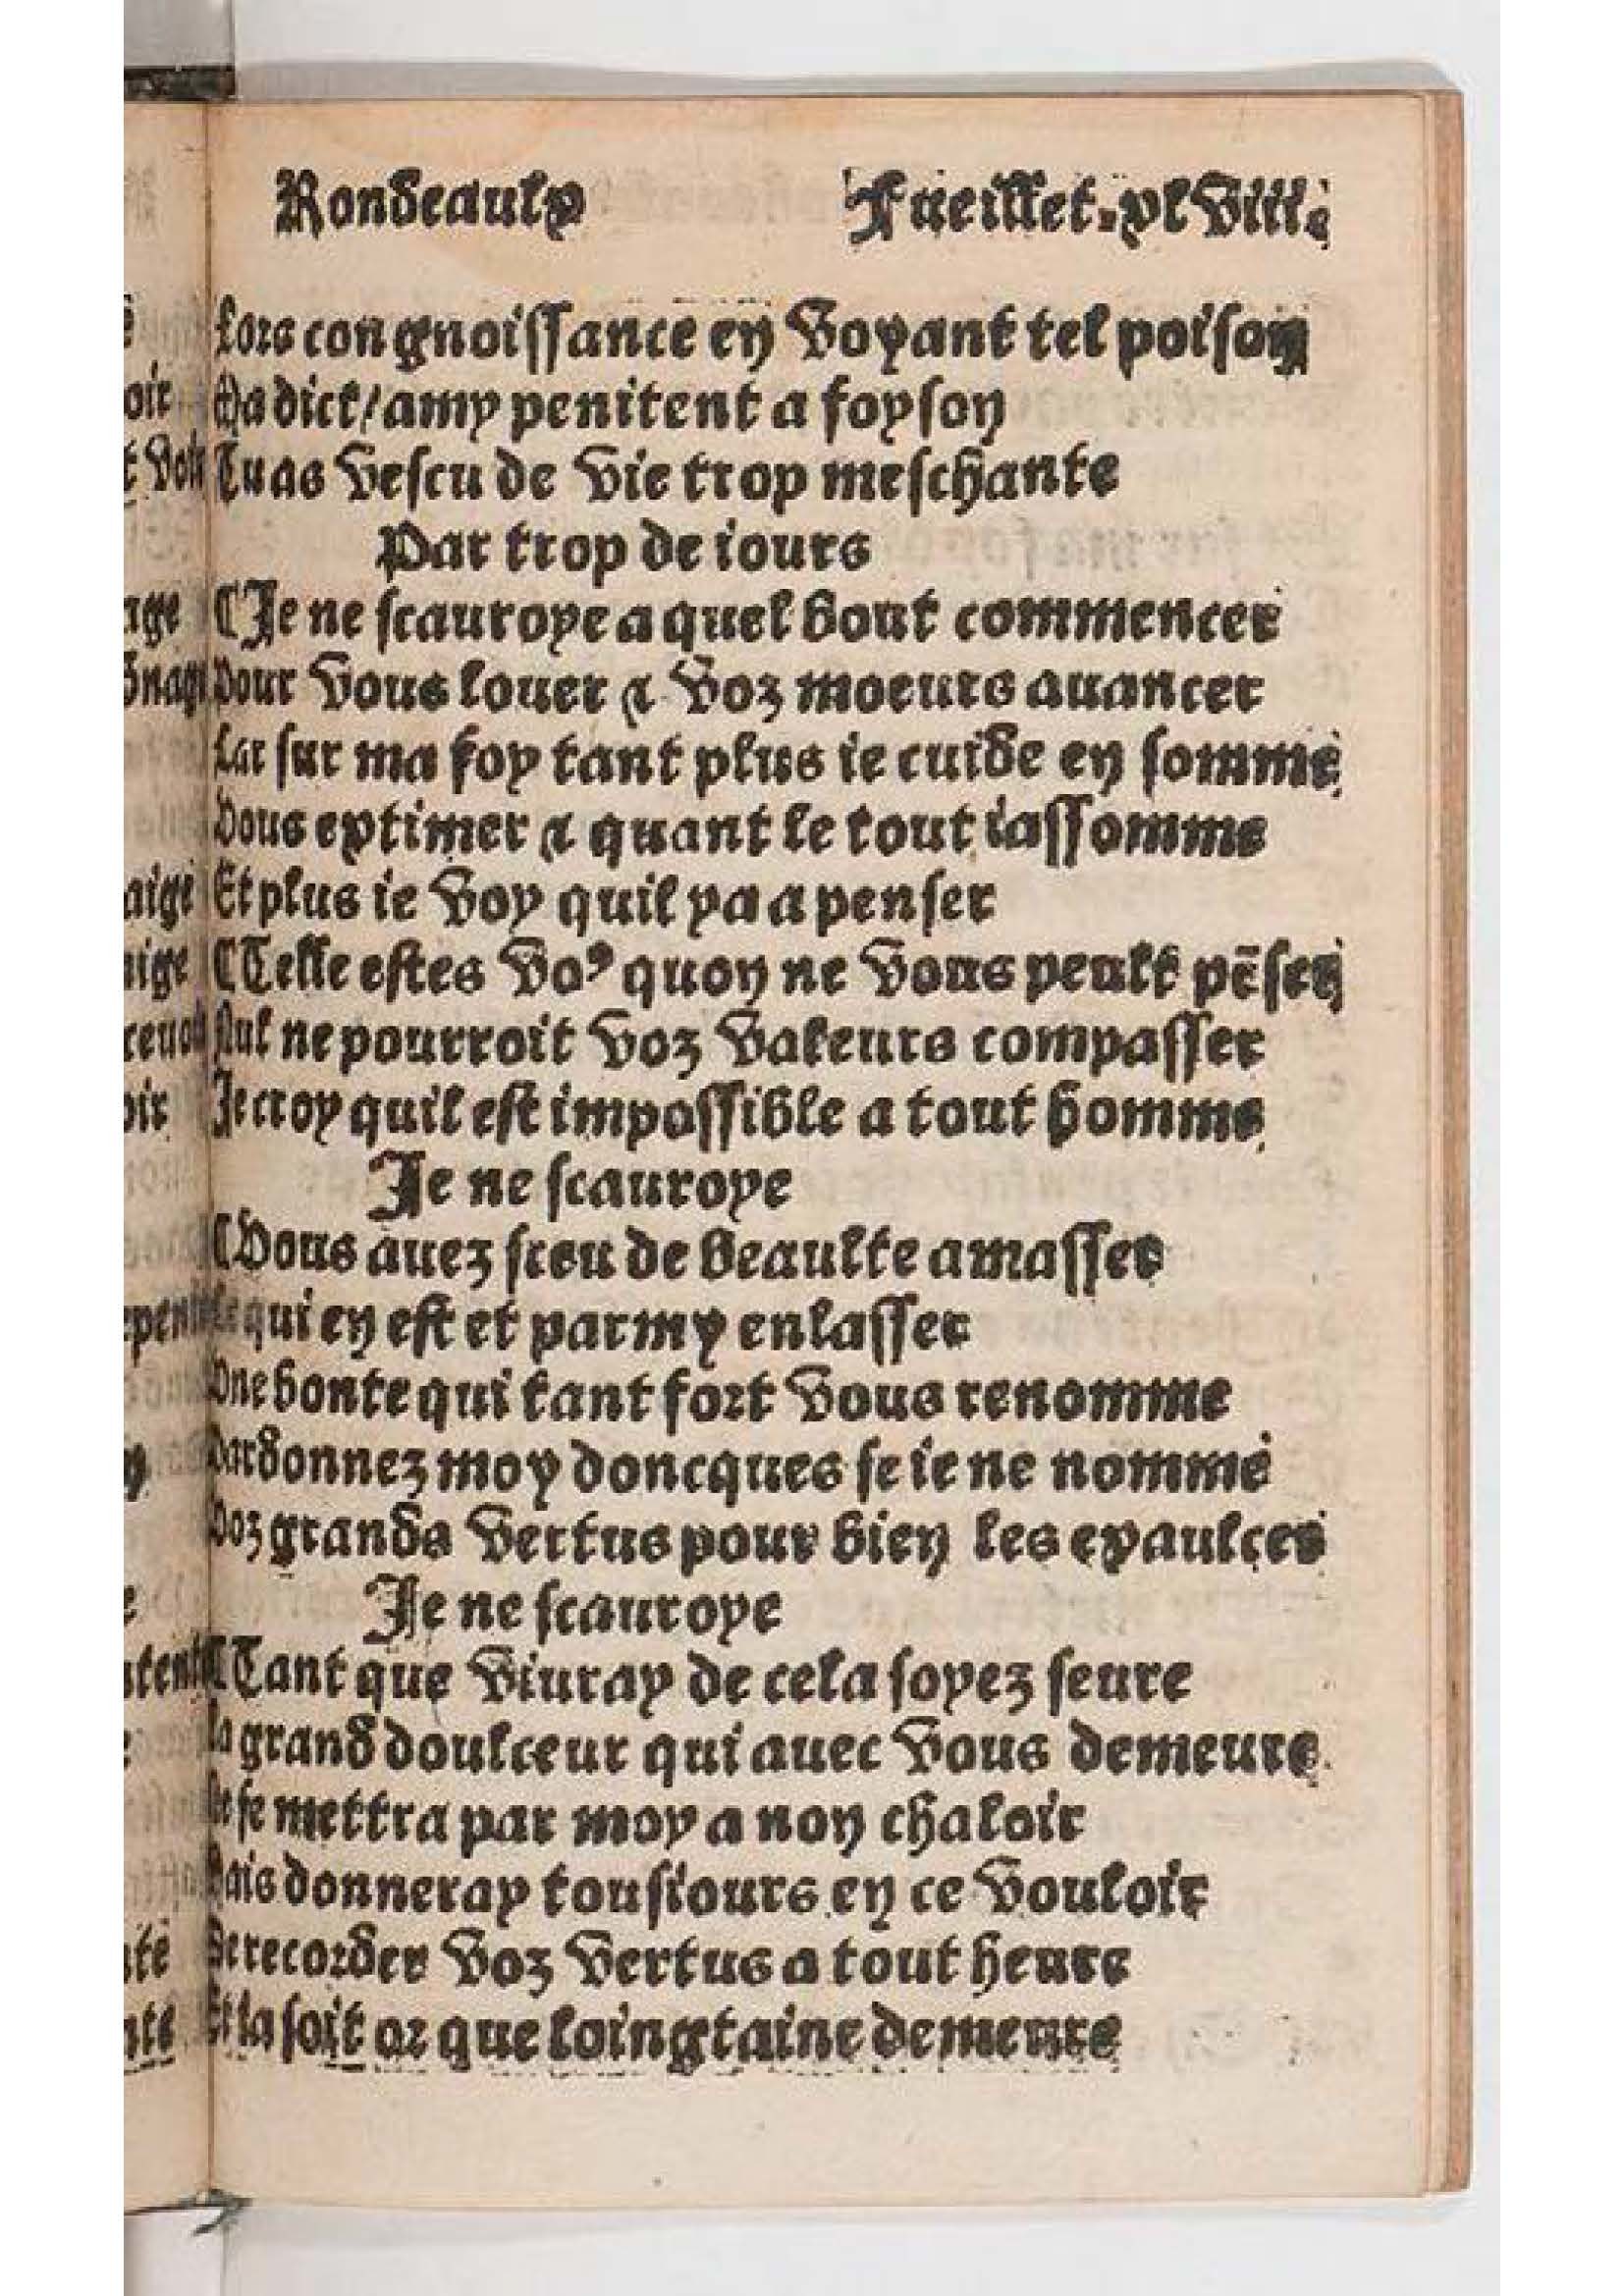 Rondeaulx Fueillet.xlviii.
Lors congnoissance en voyant tel poison
Ma dict/amy penitent a foyson
Tu as vescu de vie trop meschante
Par trop de iours
⸿Je ne scauroye a quel bout commencer
Pour vous louer ⁊ voz moeurs auancer
Car sur ma foy tant plus ie cuide en somme
Vous extimer ⁊ quant le tout iassomme
Et plus ie voy quil ya a penser
⸿Telle estes voꝰ quon ne vous peult pēser
Nul ne pourroit voz valeurs compasser
Je croy quil est impossible a tout homme
Je ne scauroye
⸿Vous auez sceu de beaulte amasser
Ce qui en est et parmy enlasser
Vne bonte qui tant fort vous renomme
Pardonnez moy doncques se ie ne nomme
Voz grands vertus pour bien les exaulcer
Je ne scauroye
⸿Tant que viuray de cela soyez seure
La grand doulceur qui auec vous demeure
Ne se mettra par moy a non chaloir
Mais donneray tousiours en ce vouloir
De recorder voz vertus a tout heure
Et la soit or que loingtaine demeure